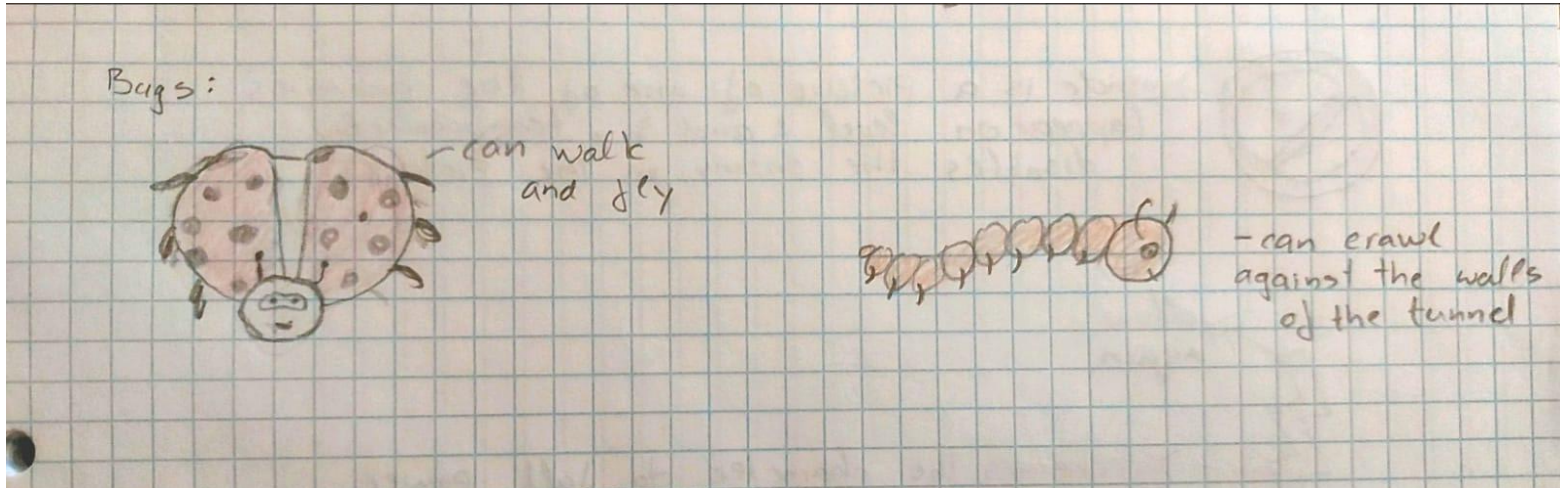 Bugs:
-can walk
and fly
-can crawl
against the walls
of the tunnel